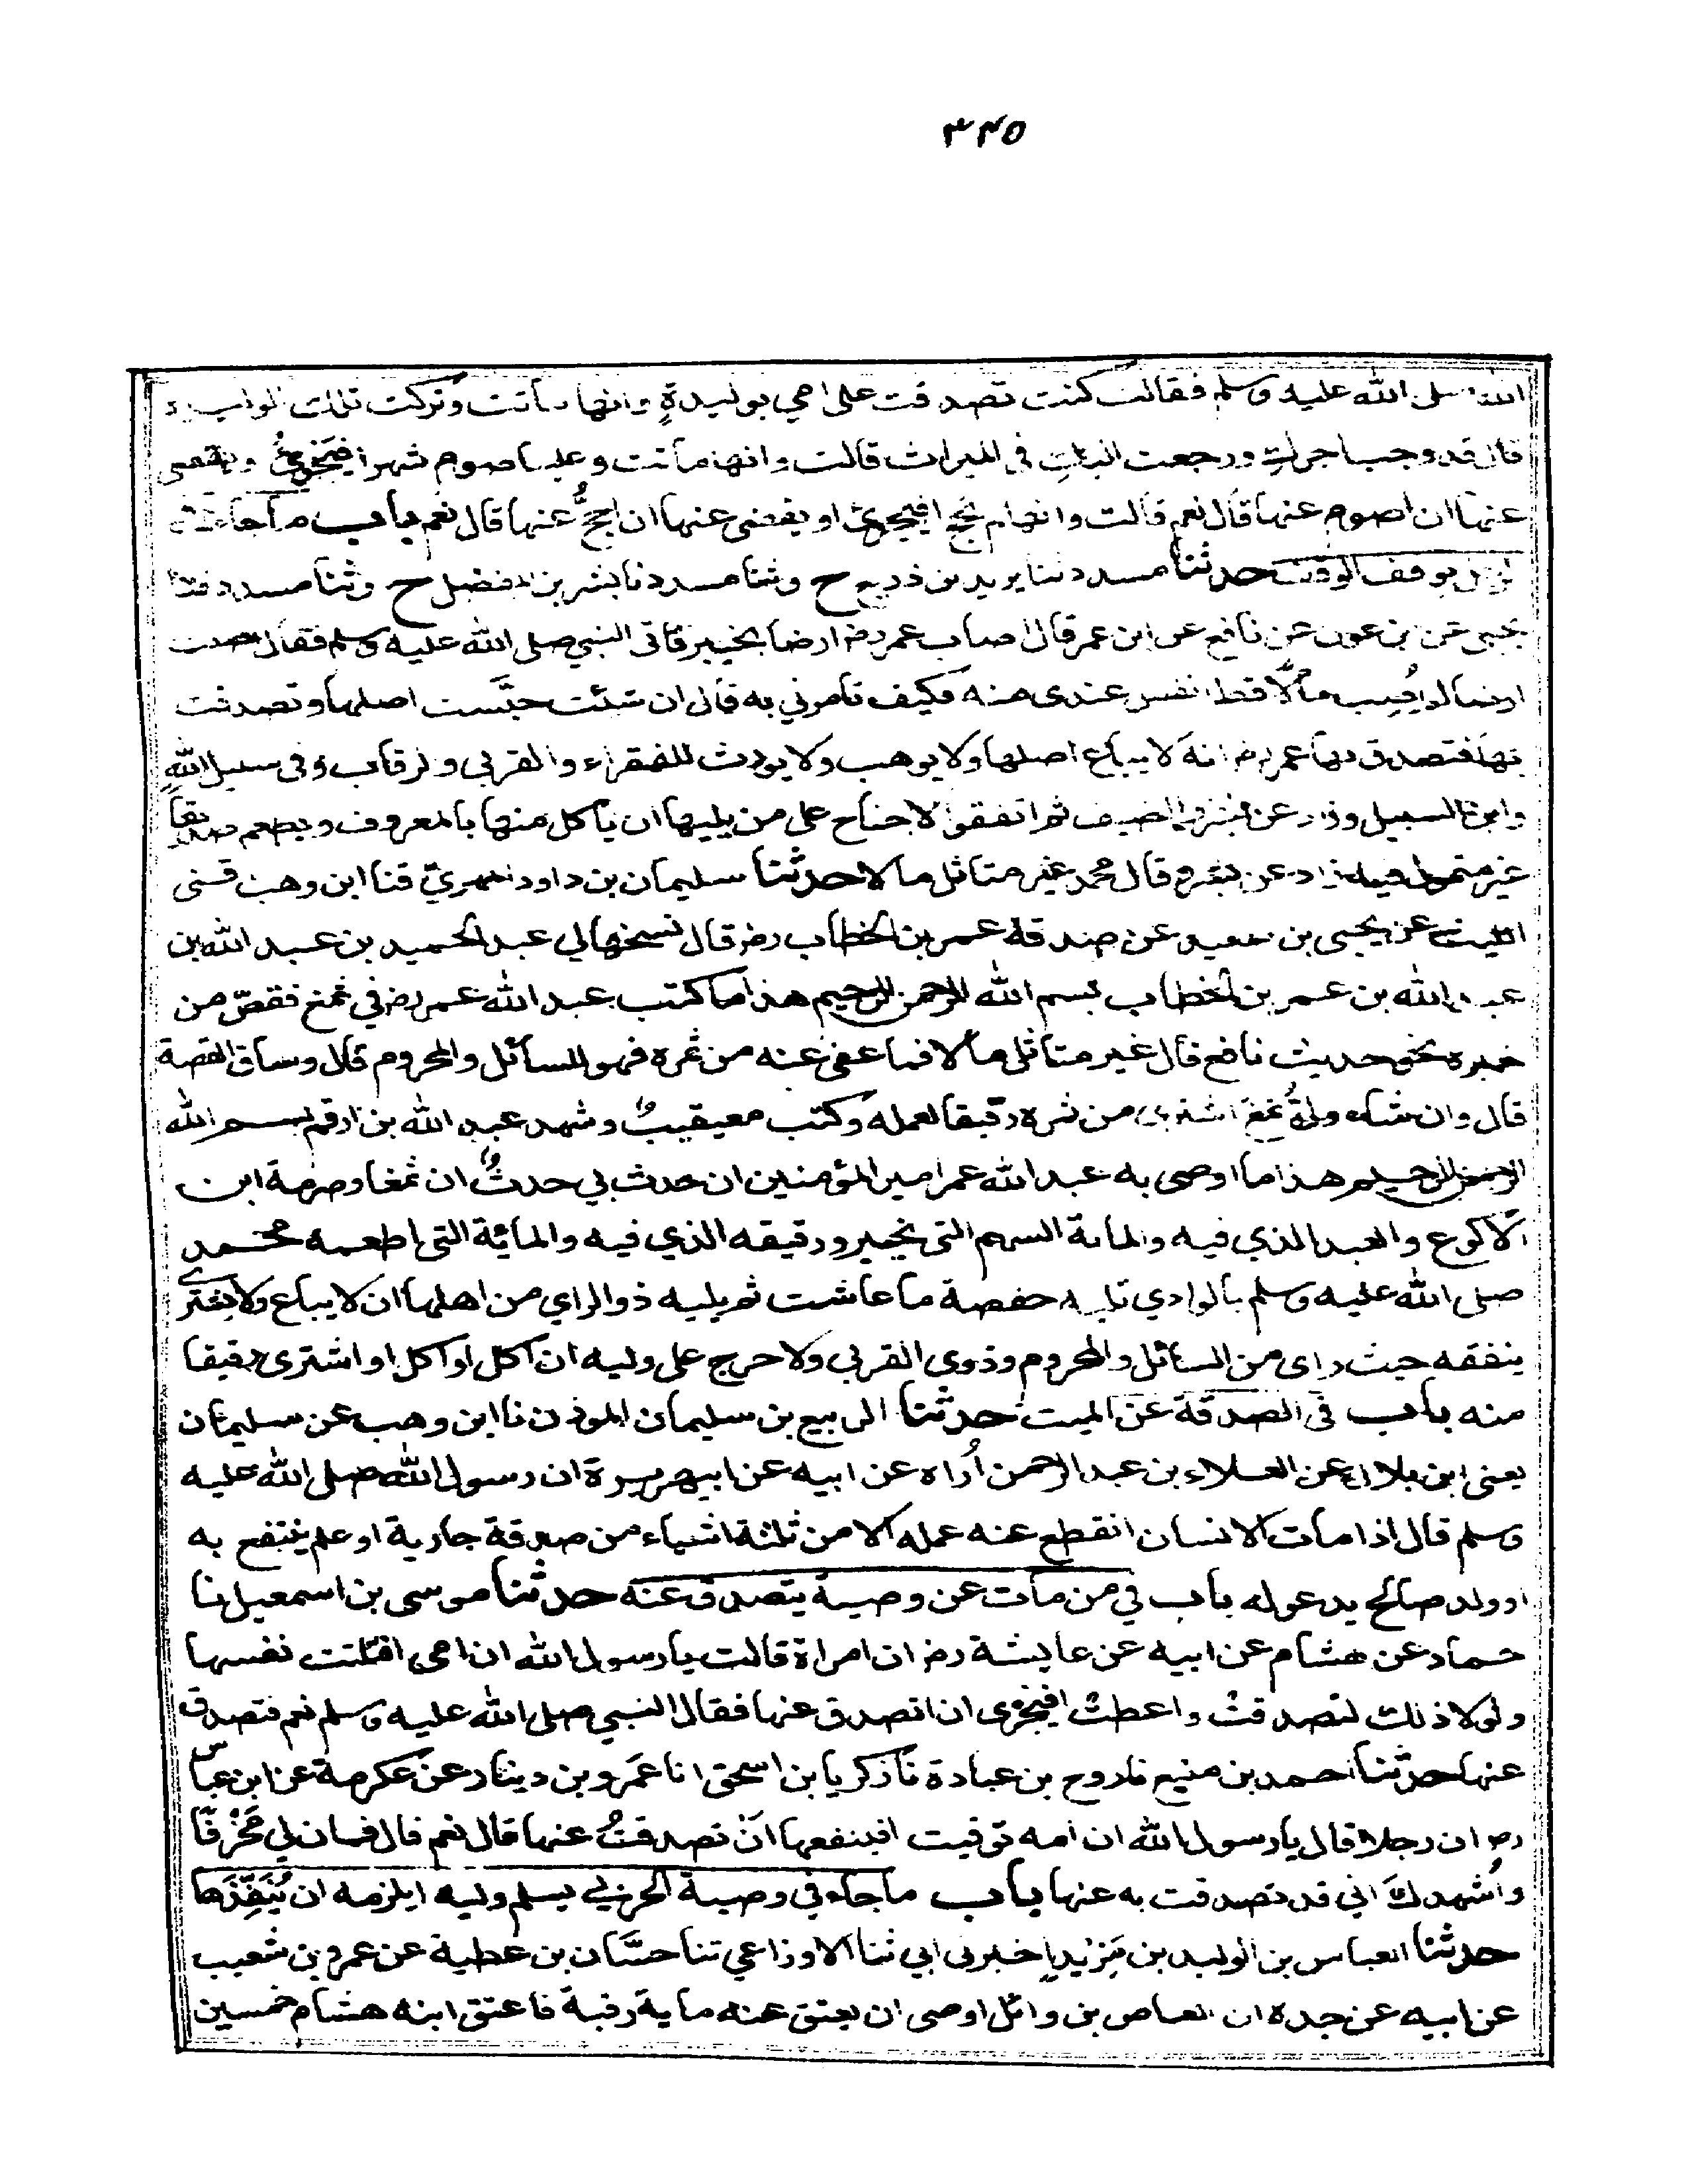 ٣٢٥
الله صلى الله عليه وسلم فقالت كنت تصدقت على امي بوليدة وانها ماتت وتركت تلك الوليدة
قال قد وجب اجرك ورجعت اليك في الميراث قالت وانها ماتت وعليها صوم شهر افيجزئ ويقضى
عنها ان اصوم عنها قال نعم قالت وانها لم تحج افيجزئ او يقضى عنها ان احجّ عنها قال نعم باب ما جاء في
الرجل يوقف الوقف حدثنا مسدد ثنا يزيد بن زريع ح وثنا مسدد نا بشر بن المفضل ح وثنا مسدد ثنا
يحيى عن ابن عون عن نافع عن ابن عمر قال اصاب عمر رضـ ارضا بخيبر فاتى النبي صلى الله عليه وسلم فقال اصبت
ارضا لم اُصِب مالًا قط انفس عندى منه فكيف تامرني به قال ان شئت حبَّست اصلها وتصدقت
بها فتصدق بها عمر رضـ انه لا يباع اصلها ولا يوهب ولا يورث للفقراء والقربى والرقاب وفى سبيل الله
وابن السبيل وزاد عن بشر والضيف ثم اتفقوا لا جناح على من يليها ان ياكل منها بالمعروف ويطعم صديقا
غير متمول فيه زاد عن بشر وقال محمد غير متاثل مالا حدثنا سليمان بن داود المهريّ قثنا ابن وهب قسنى
الليث عن يحيى بن سعيد عن صدقة عمر بن الخطاب رضـ قال نسخها لي عبد الحميد بن عبد الله بن
عبد الله بن عمر بن الخطاب بسم الله الرحمن الرحيم هذا ما كتب عبد الله عمر رضـ في ثمغ فقصّ من
خبره نحو حديث نافع قال غير متاثل مالا فما عفى عنه من ثمره فهو للسائل والمحروم قال وساق القصة
قال وان شاء وليُّ ثمغ اشترى من ثمره رقيقا لعمله وكتب معيقيبٌ وشهد عبد الله بن ارقم بسم الله
الرحمن الرحيم هذا ما اوصى به عبد الله عمر امير المؤمنين ان حدث بي حدثٌ ان ثمغا وصرمة ابن
الاكوع والعبد الذي فيه والماىة السهم التى بخيبر ورقيقه الذي فيه والمائة التى اطعمه محمد
صلى الله عليه وسلم بالوادي تليه حفصة ما عاشت ثم يليه ذو الراي من اهلها ان لا يباع ولا يشترى
ينفقه حيث راى من السائل والمحروم وذوى القربى ولا حرج على وليه ان اكل او آكل او اشترى رقيقا
منه باب فى الصدقة عن الميت حدثنا الربيع بن سليمان الموذن نا ابن وهب عن سليمان
يعنى ابن بلال عن العلاء بن عبد الرحمن اُراه عن ابيه عن ابي هريرة ان رسول الله صلى الله عليه
وسلم قال اذا مات الانسان انقطع عنه عمله الا من ثلثة اشياء من صدقة جارية او علم ينتفع به
او ولد صالح يدعو له باب في من مات عن وصية يتصدق عنه حدثنا موسى بن اسمعيل نا
حماد عن هشام عن ابيه عن عايشة رضـ ان امراة قالت يا رسول الله ان امى افتلتت نفسها
ولولا ذلك لتصدقتْ واعطتْ افيجزى ان اتصدق عنها فقال النبي صلى الله عليه وسلم نعم فتصدق
عنها حدثنا احمد بن منيع نا روح بن عبادة نا زكريا بن اسحق انا عمرو بن دينار عن عكرمة عن ابن عباس
رضـ ان رجلا قال يا رسول الله ان امه توفيت افينفعها انْ تصدقتُ عنها قال نعم قال فان لي مَخْرفًا
واُشهدكَ اني قد تصدقت به عنها باب ما جاء في وصية الحربي يسلم وليه ايلزمه ان يُنَفِّذَها
حدثنا العباس بن الوليد بن مَزْيَد اخبرنى ابي ثنا الاوزاعي ثنا حسَّان بن عطية عن عمرو بن شعيب
عن ابيه عن جده ان العاص بن وائل اوصى ان يعتق عنه ماية رقبة فاعتق ابنه هشام خمسين